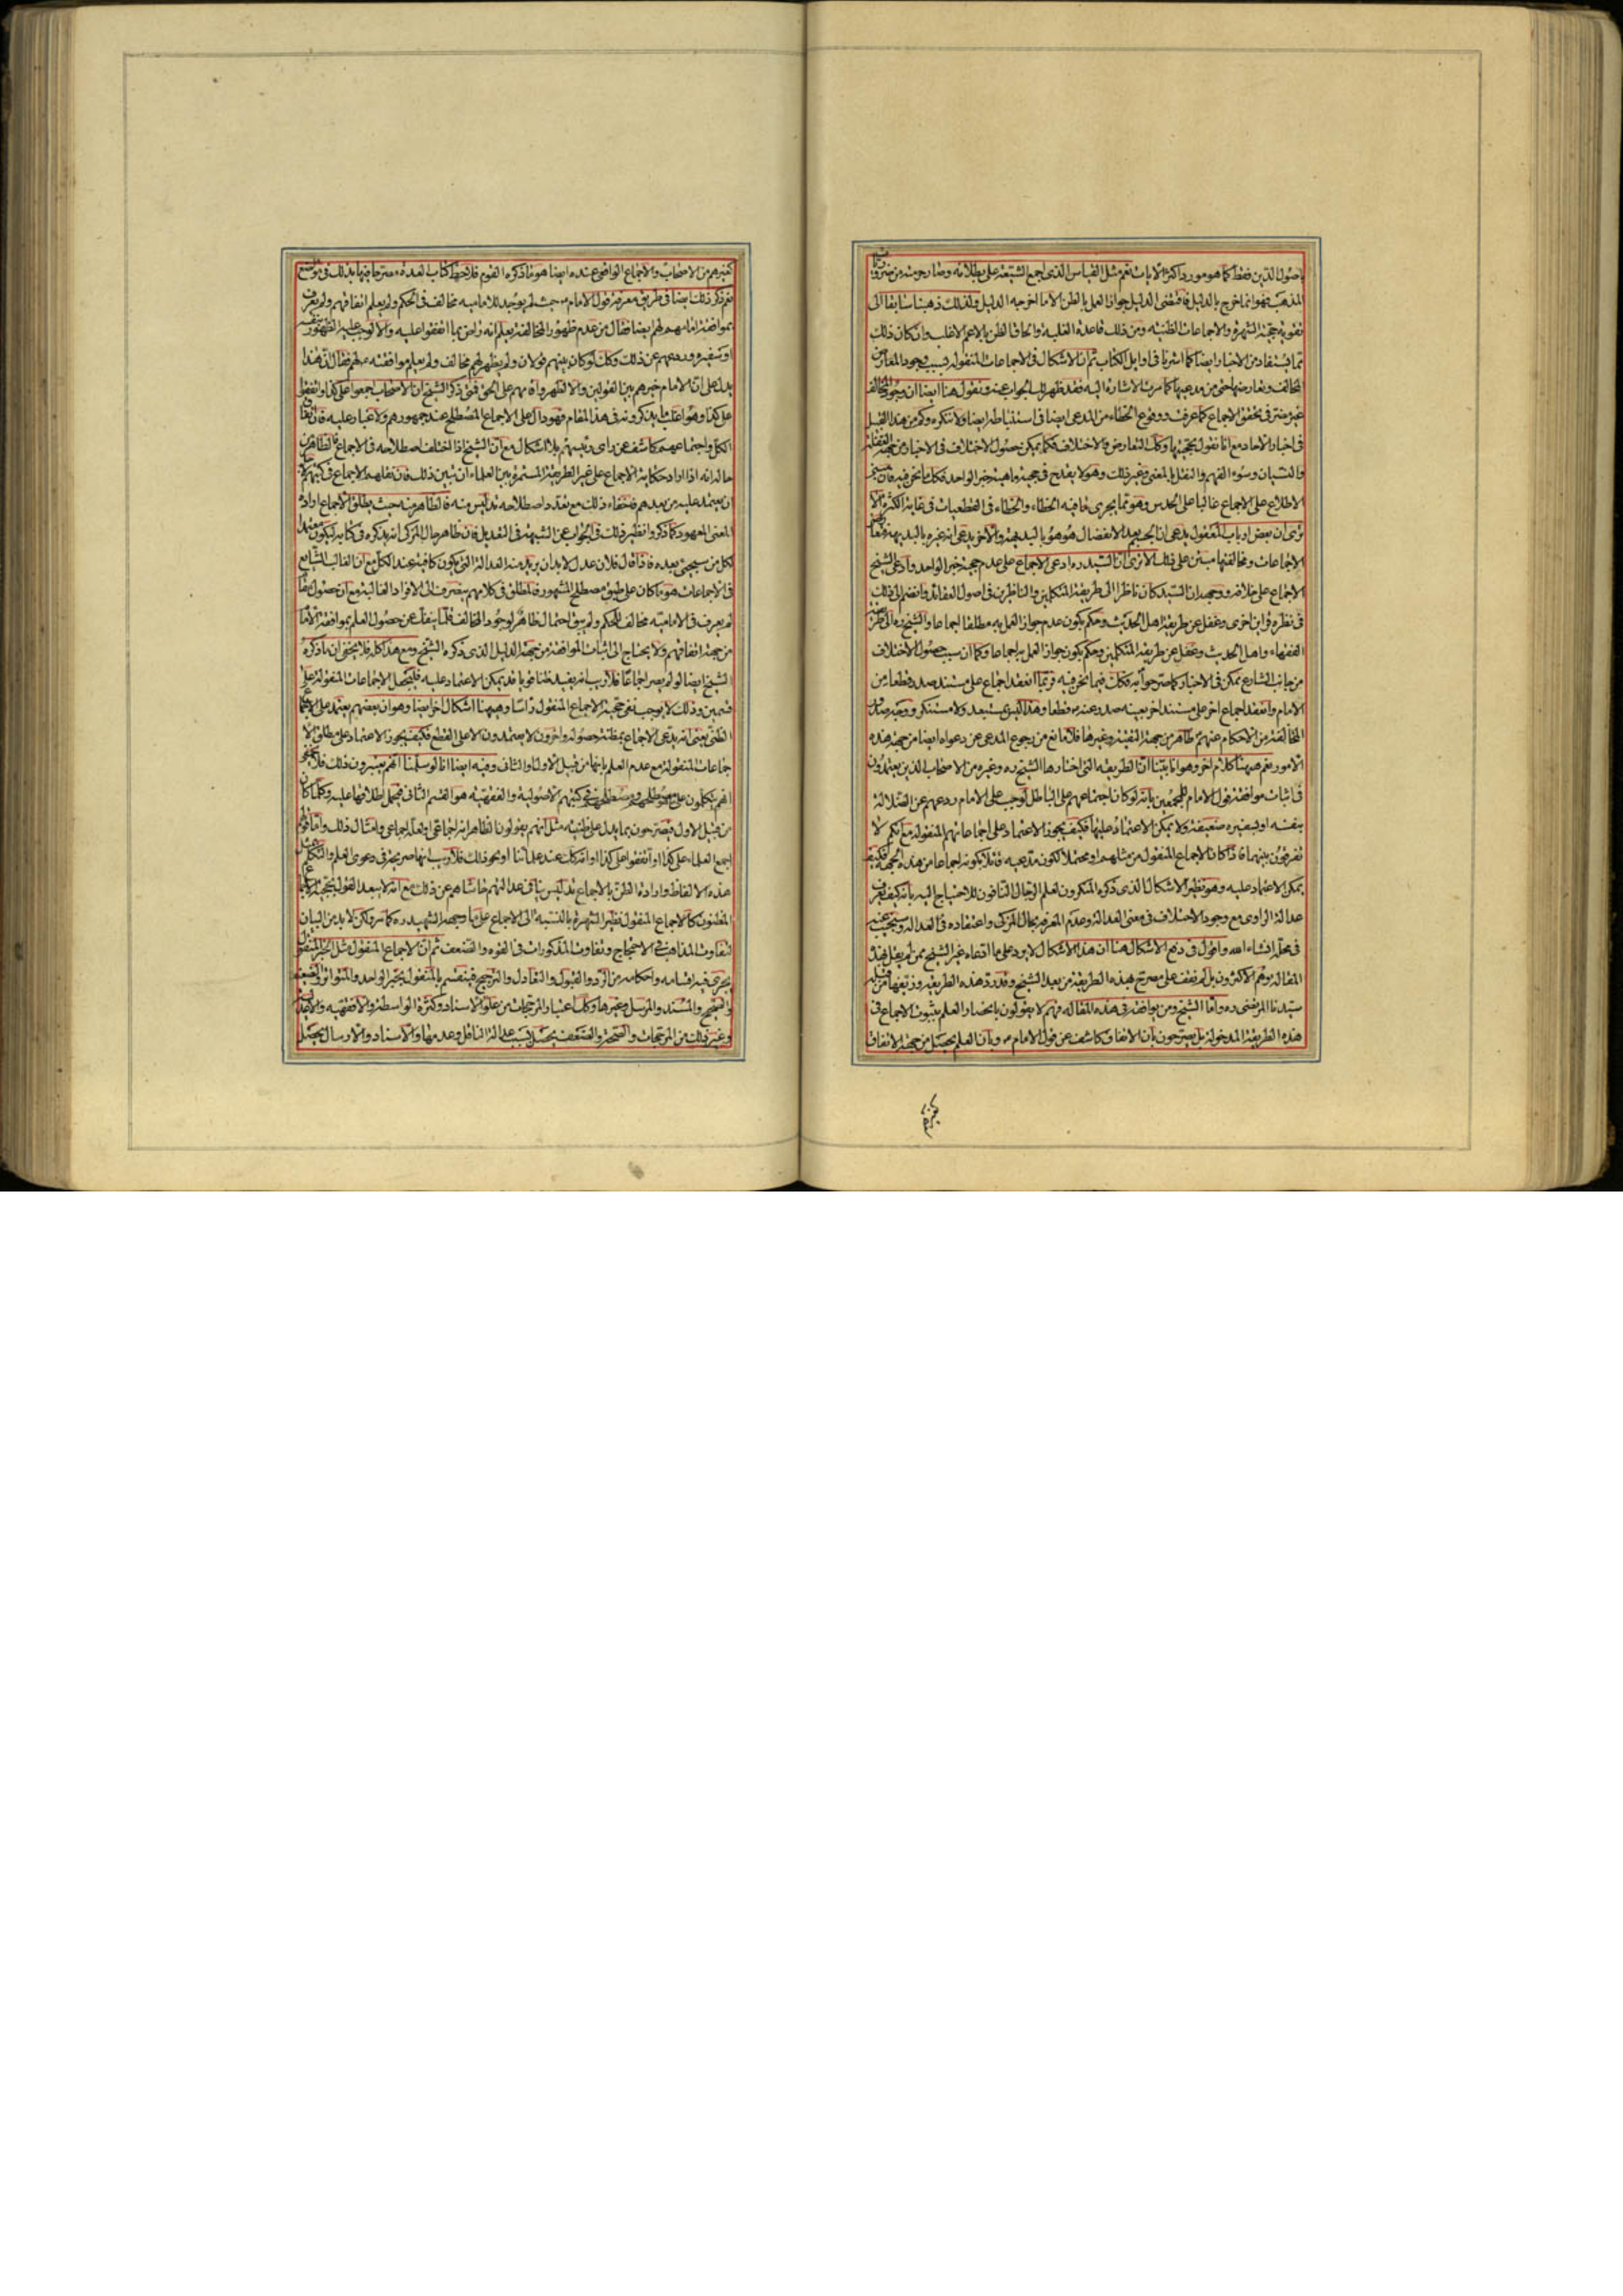 باصول الدين فقط كما هو مورد اكثر الايات نعم مثل القياس الذى اجمع الشيعة على بطلانه وصار حرمته من ضروريات
المذهب فهو انما خرج بالدليل فمقتضى الدليل جواز العمل بالظن الا ما اخرجه الدليل ولذلك ذهبنا سابقا الى
تقوية حجية الشهرة والاجماعات الظنية ومن ذلك قاعدة الغلبة والحاق الظن بالاعم الاغلب وان كان ذلك
مما يستفاد من الاخبار ايضا كما اشرنا فى اوايل الكتاب ثم ان الاشكال فى الاجماعات المنقولة بسبب وجود المعارض
المخالف وتعارضها حتى من مدعيها كما مرت الاشارة اليه فقد ظهر لك الجواب عنه ونقول هنا ايضا ان وجود المخالف
غير مضر فى تحقق الاجماع كما عرفت ووقوع الخطاء من المدعى ايضا فى استنباطه ايضا ولا ننكره وكم من هذا القبيل
فى اخبار الاحاد مع انا نقول بحجيتها وكك التعارض والاختلاف فكما يمكن حصول الاختلاف فى الاخبار من جهة الغفلة
والنسيان وسوء الفهم والنقل بالمعنى وغير ذلك وهو لا يقدح فى حجية ماهية خبر الواحد فكك ما نحن فيه فان مبنى
الاطلاع على الاجماع غالبا على الحدس وهو مما يجرى فيه الخطاء والخطاء فى القطعيات فى غاية الكثرة الا
ترى ان بعض ارباب المعقول يدعى ان الجسم بعد الانفصال هو هو بالبديهة والاخر يدعى انه غيره بالبديهة
الاجماعات ومخالفتها مبتن على ذلك الا ترى ان السيد ره ادعى الاجماع على عدم حجية خبر الواحد وادعى الشيخ
الاجماع على خلافه ووجهه ان السيد كان ناظرا الى طريقة المتكلمين والناظرين فى اصول العقائد وانضم الى ذلك
فى نظره قراين اخرى وغفل عن طريقة اهل الحديث وحكم بكون عدم جواز العمل به مطلقا اجماعا والشيخ ره الى طريقة
الفقهاء واهل الحديث وغفل عن طريقة المتكلمين وحكم بكون جواز العمل به اجماعا وكما ان سبب حصول الاختلاف
من جانب الشارع ممكن فى الاخبار كما صرحوا به فكك فيما نحن فيه فربما انعقد اجماع على مستند صدر قطعا من
الامام وانعقد اجماع اخر على مستند اخر بعينه صدر عنه قطعا وهذا ليس بمستبعد ولا مستنكر ووجه صدور
المخالفة من الاحكام عنهم ظاهر من جهة التقية وغيرها فلا مانع من رجوع المدعى عن دعواه ايضا من جهة هذه
الامور نعم هيهنا كلام اخر وهو انا بينا ان الطريقة التى اختارها الشيخ ره وغيره من الاصحاب الذين يعتمدون
فى اثبات موافقة قول الامام للمجمعين بانه لو كان اجتماعهم على الباطل لوجب على الامام ردعهم عن الضلالة
بنفسه او بسفيره ضعيفة ولا يمكن الاعتماد عليها فكيف يجوز الاعتماد على اجماعاتهم المنقولة مع انكم لا
تفرقون بينهما فاذا كان الاجماع المنقول من مثلهم او محتملا لكون مدعيه قائلا بكونه اجماعا من هذه الجهة فكيف
يمكن الاعتماد عليه وهو نظير الاشكال الذى ذكره المنكرون لعلم الرجال النافون للاحتياج اليه بانه كيف يعرف
عدالة الراوى مع وجود الاختلاف فى معنى العدالة وعدم المعرفة بحال المزكى واعتقاده فى العدالة وسنجيب عنه
فى محله انشاء الله واقول فى دفع الاشكال هنا ان هذا الاشكال لا يرد على ما ادعاه غير الشيخ ممن لم يقل بهذه
المقالة وهم الاكثرون بل لم نقف على مصرح بهذه الطريقة من بعد الشيخ وقد رد هذه الطريقة وزيفها من قبله
سيدنا المرتضى ره واما الشيخ ومن يوافقه فى هذه المقالة فهم لا يقولون بانحصار العلم بثبوت الاجماع فى
هذه الطريقة المدخولة بل يصرحون بان الاتفاق كاشف عن قول الامام وبان العلم يحصل من جهة الاتفاق
كغيرهم
كغيرهم من الاصحاب والاجماع الواقعى عنده ايضا هو ما ذكره القوم فلاحظ كتاب العدة مصرحا فيها بذلك فى مواضع
نعم ذكر ذلك ايضا فى طريق معرفة قول الامام حيث لم يوجد للامامية مخالف فى الحكم ولم يعلم اتفاقهم ولم يعرف
بموافقة امامهم لهم ايضا فقال من عدم ظهور المخالفة يعلم انه راض بما اتفقوا عليه والا لوجب عليه الظهور بنفسه
او بسفيره وردعهم عن ذلك وكك لو كان بينهم قولان ولم يظهر لهم مخالف ولم يعلم موافقته لهم فقال ان هذا
يدل على ان الامام خيرهم بين القولين والا لظهر واداهم على الحق فمتى ذكر الشيخ ان الاصحاب اجمعوا على كذا واتفقوا
على كذا وهو اغلب ما يذكرونه فى هذا المقام فهو دال على الاجماع المصطلح عند جمهورهم ولا غبار عليه فان اتفاق
الكل واجتماعهم كاشف عن راى رئيسهم بلا اشكال مع ان الشيخ اذا اختلف اصطلاحه فى الاجماع فالظاهر من
حاله انه اذا اراد حكاية الاجماع على غير الطريقة المستمرة بين العلماء ان يبين ذلك فان نقلهم الاجماع فى كتبهم لاجل
ان يعتمد عليه من بعدهم فخفاء ذلك مع تعدد اصطلاحه تدليس منه فالظاهر منه حيث يطلق الاجماع ارادة
المعنى المعهود كما ذكروا نظير ذلك فى الجواب عن الشبهة فى التعديل فان ظاهر حال المزكى انه يذكره فى كتابه ليكون معتمدا
لكل من سيجئ بعده فاذا قال فلان عدل لا بد ان يريد منه العدالة التى تكون كافية عند الكل مع ان الغالب الشايع
فى الاجماعات هو ما كان على طبق مصطلح المشهور فالمطلق فى كلامهم ينصرف الى الافراد الغالبة مع ان حصول اتفاق
لم يعرف فى الامامية مخالف للحكم ولم يبق احتمال ظاهر لوجود المخالف قلما ينفك عن حصول العلم بموافقة الامام
من جهة اتفاقهم ولا يحتاج الى اثبات الموافقة من جهة الدليل الذى ذكره الشيخ ومع هذا كله فلا يخفى ان ما ذكره
الشيخ ايضا لو لم يصر اجماعا فلا ريب انه يفيد ظنا قويا قد يمكن الاعتماد عليه فيحصل الاجماعات المنقولة على
قسمين وذلك لا يوجب نفى حجية الاجماع المنقول راسا وهيهنا اشكال اخر ايضا وهو ان بعضهم يعتمد على الاجماع
الظنى يعنى انه يدعى الاجماع بمظنة حصوله واخرون لا يعتمدون الا على القطع فكيف يجوز الاعتماد على مطلق الا
جماعات المنقولة مع عدم العلم بانها من قبيل الاول او الثانى وفيه ايضا انا لو سلمنا انهم يعتبرون ذلك فلا يخفى
انهم يتكلمون على مصطلحهم ومصطلحهم فى كتبهم الاصولية والفقهية هو القسم الثانى فيحمل اطلاقها عليه وكلما كان
من قبيل الاول فيصرحون بما يدل على ظنية مثل انهم يقولون الظاهر انه اجماعى او لعله اجماعى وامثال ذلك واما قولهم
اجمع العلماء على كذا او اتفقوا على كذا او انه كك عند علمائنا او نحو ذلك فلا ريب انها صريحة فى دعوى العلم والتكلم بمثل
هذه الالفاظ وارادة الظن بالاجماع تدليس ينافى عدالتهم حاشاهم عن ذلك مع انه لا يبعد القول بحجية
المظنون كالاجماع المنقول نظير الشهرة بالنسبة الى الاجماع على ما وجهه الشهيد ره كما مر ولكن لا بد من البيان
لتفاوت المذاهب فى الاحتجاج وتفاوت المذكورات فى القوة والضعف ثم ان الاجماع المنقول مثل الخبر المنقول
يجرى فيه اقسامه واحكامه من الرد والقبول والتعادل والترجيح فينقسم بالمنقول بخبر الواحد والمتواتر والضعيف
والصحيح والمسند والمرسل وغيرها وكك اعتبار المرجحات من علو الاسناد وكثرة الواسطة والافقهية والاعدلية
وغير ذلك من المرجحات والصحة والضعف يحصل بسبب عدالة الناقل وعدمها والاسناد والارسال يحصل